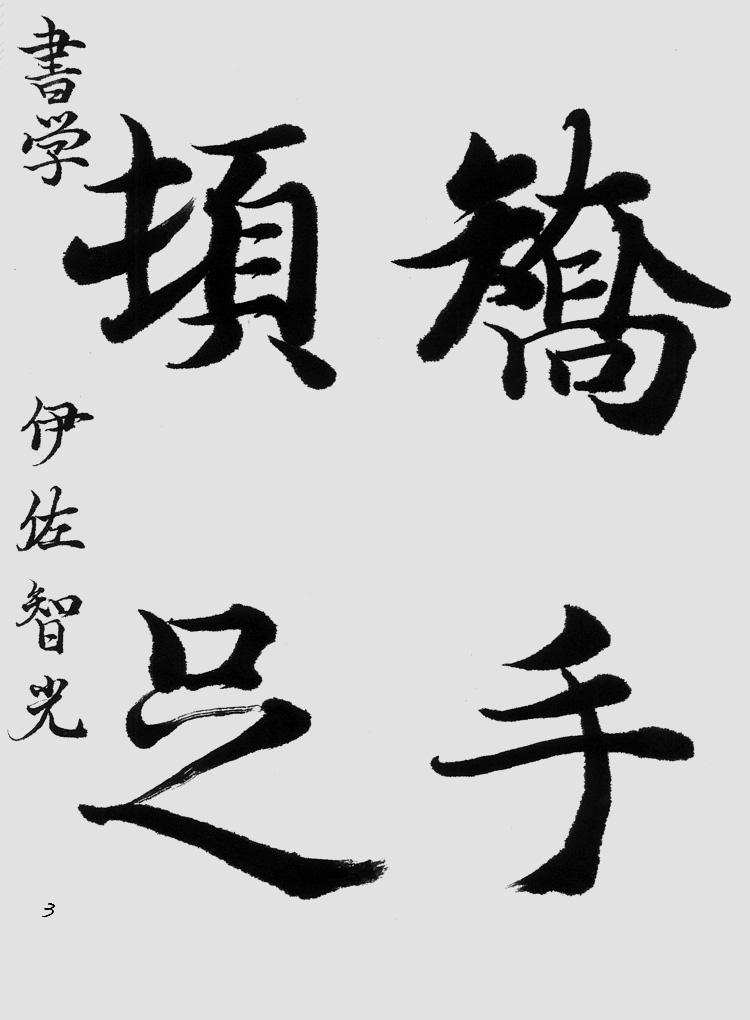 矯手
頓足
書学 伊佐智光
3